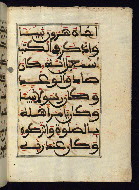 أخاه هرون نبيا
واذكر في الكتب
إسمعيل إنه كان
صادق الوعد
وكان رسولا نبيا
وكان يأمر أهله
بالصلوة والزكوة
وكان عند ربه